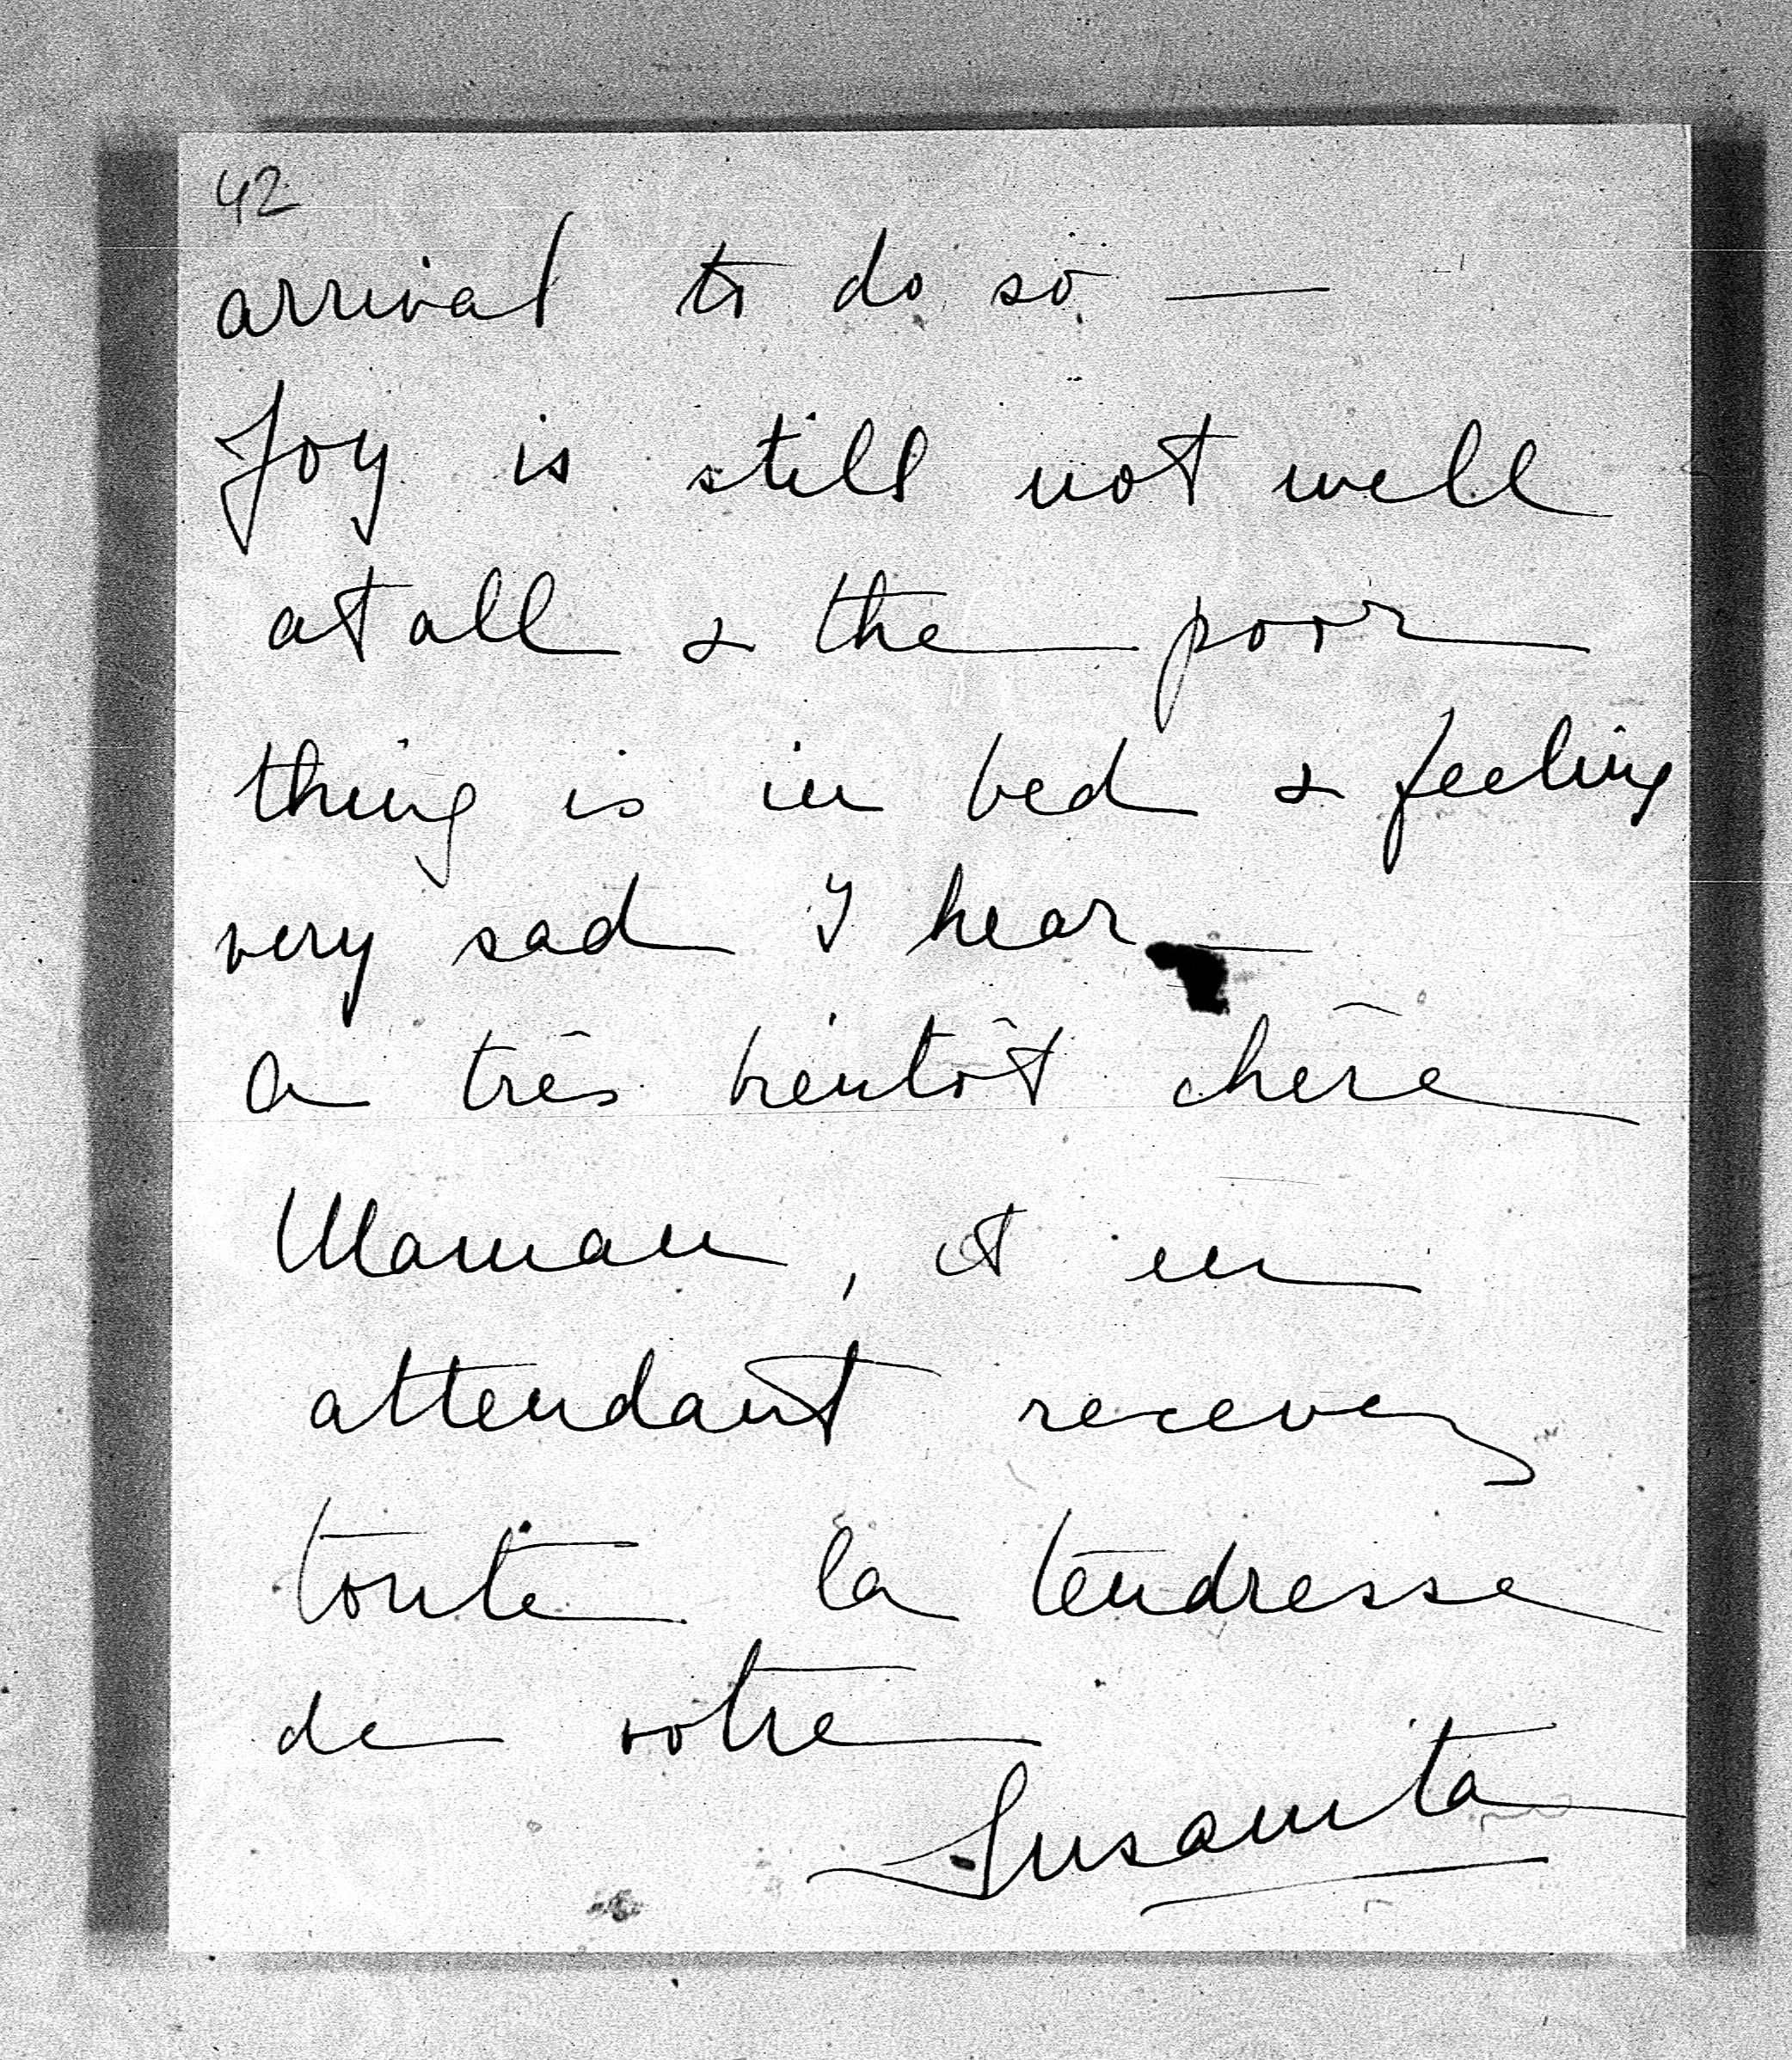 42
arrival to do so —
Joy is still not well
at all & the poor
thing is in bed & feeling
very sad I hear —
a très bientôt chère
Maman, et en
attendant recevez
toute la tendresse
de votre
Susanita